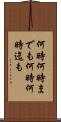 何時何時ま
でも何時何
時迄も